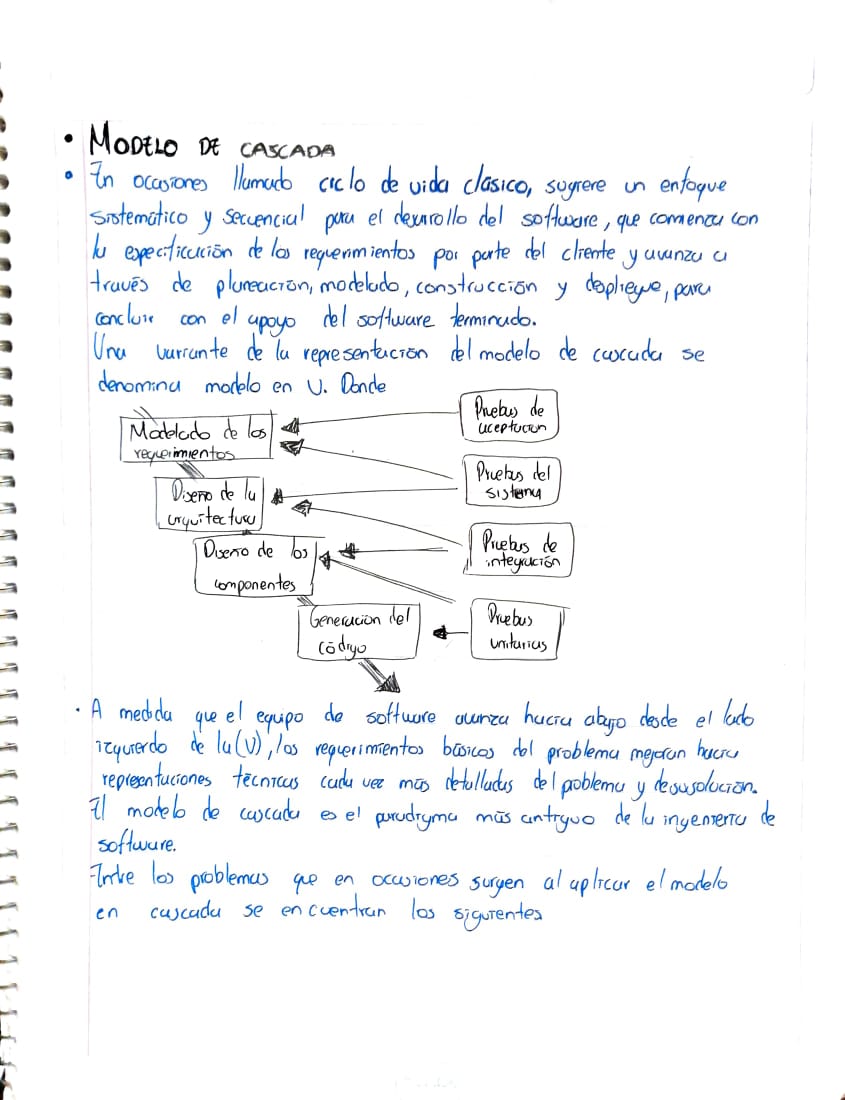 • MODELO DE CASCADA
• En ocasiones llamado ciclo de vida clásico, sugiere un enfoque
sistemático y secuencial para el desarrollo del software, que comienza con
la especificación de los requerimientos por parte del cliente y avanza a
través de planeación, modelado, construcción y despliegue, para
concluir con el apoyo del software terminado.
Una variante de la representación del modelo de cascada se
denomina modelo en V. Donde
Modelado de los
requerimientos
Pruebas de
aceptacion
Diseño de la
arquitectura
Pruebas del
sistema
Diseño de los
componentes
Pruebas de
integración
Generacion del
código
Pruebas
unitarias
• A medida que el equipo de software avanza hacia abajo desde el lado
izquierdo de la (V), los requerimientos básicos del problema mejoran hacia
representaciones técnicas cada vez más detalladas del problema y de su solución.
El modelo de cascada es el paradigma más antiguo de la ingeniería de
software.
Entre los problemas que en ocasiones surgen al aplicar el modelo
en cascada se encuentran los siguientes